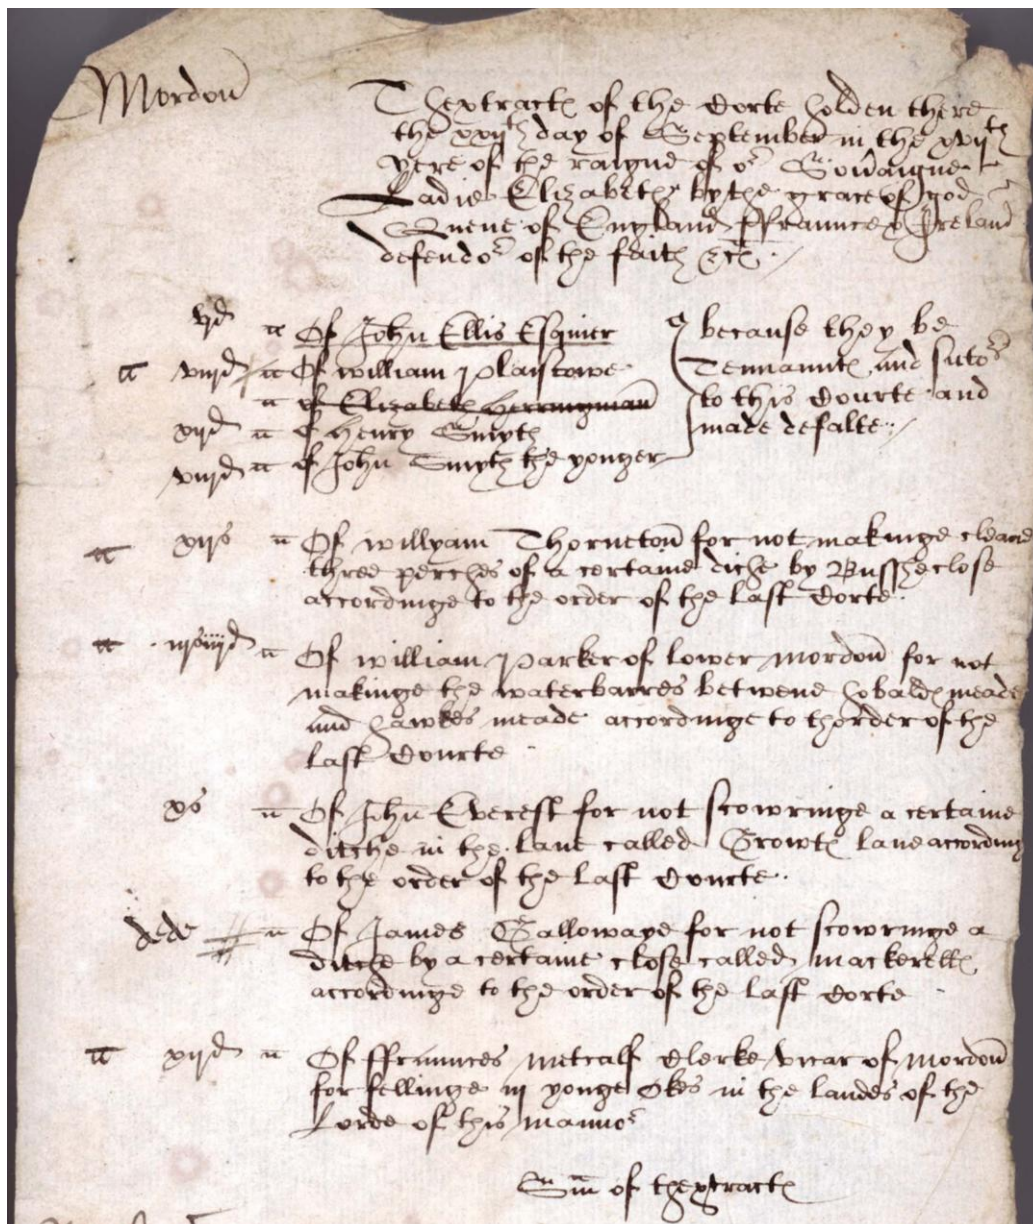 Mordon
Thextractes of the Corte holden there
the xxiith day of September in the xviith
yere of the raigne of or Sovaigne
Ladie Elizabeth by the grace of god
Quene of England ffraunce & Ireland
defendor of the faith &c
vjd Of John Ellis Esquier
viijd Of william Plaistowe
of Elizabeth Herringman
xijd of Henry Smyth
viijd of John Smyth the yonger
because they be
Tennauntes and sutors
to this Courte and
made defalte
xijs Of willyam Thorneton for not makinge cleane
three perches of a certaine diche by Bussheclose
accordinge to the order of the last Corte
iijs iiijd Of william Parker of lower mordon for not
makinge the waterbarres betwene hobaldes meade
and hawkes meade accordinge to thorder of the
last Courte
xs Of John Everest for not scowringe a certaine
ditche in the lane called Growtes lane according
to the order of the last Courte
dede Of James Gallowaye for not scowringe a
ditche by a certaine close called mackerelles
accordinge to the order of the last Corte
xijd Of ffraunces metcalf Clerke vicar of mordon
for fellinge iij yonge okes in the landes of the
Lorde of this mannor
Sum of thextractes